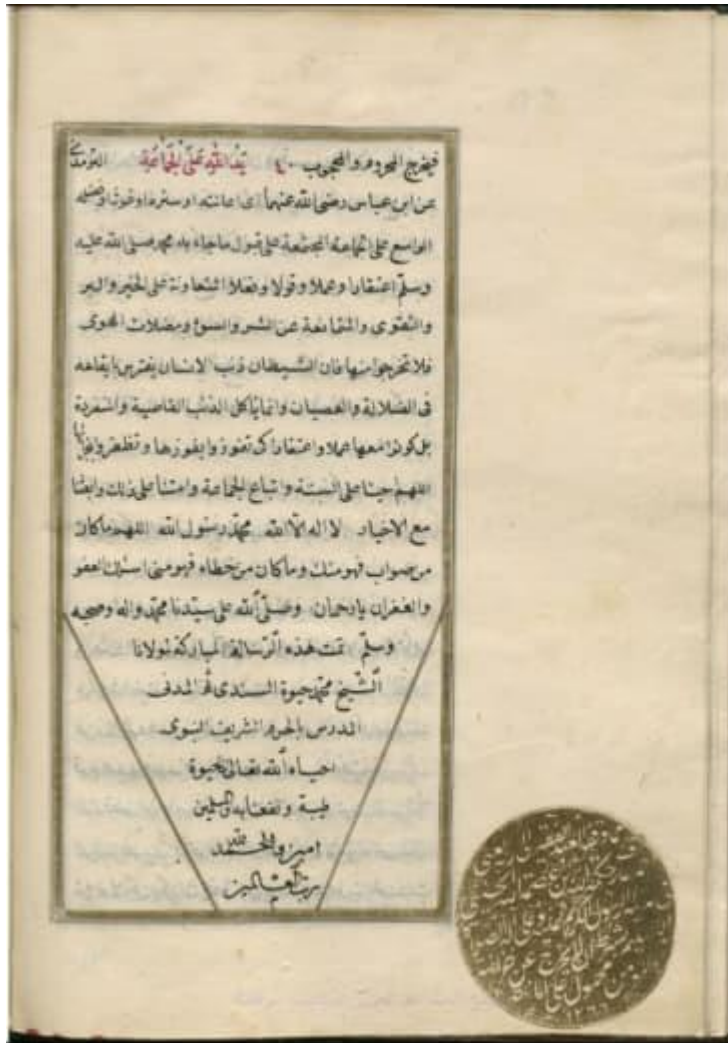 فيفرح المحروم والمحجوب ٤٠ يد الله على الجماعة الترمذي
عن ابن عباس رضي الله عنهما اى اعانته او ستره او قوته او فضله
الواسع على الجماعة المجتمعة على قبول ما جاء به محمد صلى الله عليه
وسلم اعتقادا وعملا وقولا وفعلا المتعاونة على الخير والبر
والتقوى والمتمانعة عن الشر والسوء ومضلات الهوى
فلا تخرجوا منها فان الشيطان ذئب الانسان يفترس بايقاعه
فى الضلالة والعصيان وانما ياكل الذئب القاصية والمنفردة
بل كونوا معها عملا واعتقادا كى تفوزوا بفوزها وتظفروا
اللهم احينا على السنة واتباع الجماعة وامتنا على ذلك وايضا
مع الاخيار لا اله الا الله محمد رسول الله اللهم ما كان
من صواب فهو منك وما كان من خطاء فهو منى اسئلك العفو
والغفران يا رحمان وصلى الله على سيدنا محمد واله وصحبه
وسلم تمت هذه الرسالة المباركة لمولانا
الشيخ محمد حيوة السندى ثم المدنى
المدرس بالحرم الشريف النبوى
احياه الله تعالى بحيوة
طيبة ونفعنا به والمسلمين
امين والحمد لله
رب العالمين
الرسول الكريم محمد وعلى
بشرط ان لا يخرج عن
١٢٦٦